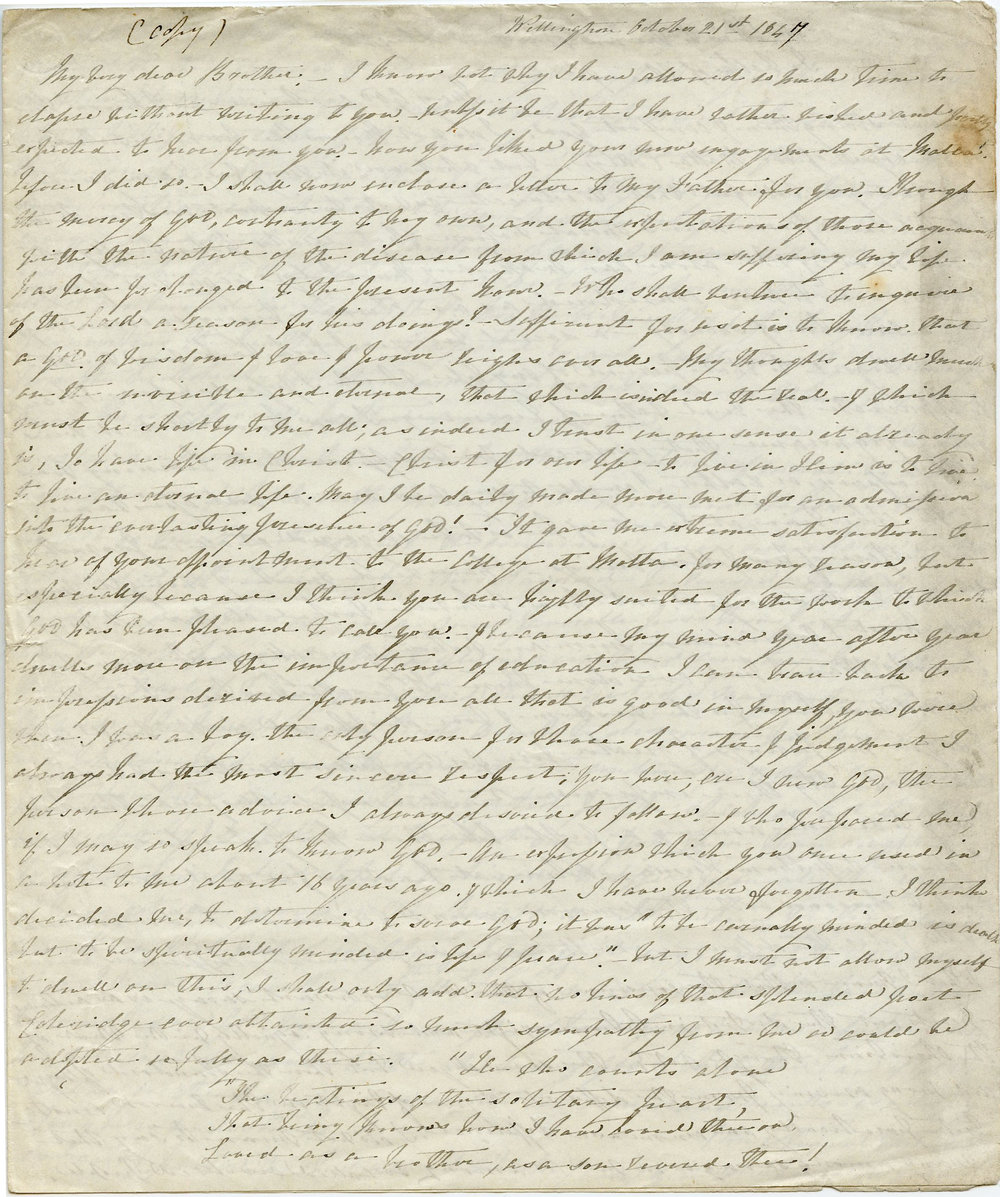 (Copy) Wellington October 21st 1847
My very dear Brother. – I know not why I have allowed so much time to
elapse without writing to you. – unless it be that I have rather wished and
expected to hear from you – how you liked your new engagements at Malta.
before I did so – I shall now enclose a letter to my Father for you. Through
the mercy of God, contrary to my own, and the expectations of those acquainted
with the nature of the disease from which I am suffering my life
has been prolonged to the present hour. – Who shall venture to inquire
of the Lord a reason for his doings? – Sufficient for us it is to know that
a God of wisdom & love & power reigns over all. – My thoughts dwell much
on the invisible and eternal, that which is indeed the real. & which
must be shortly to me all; as indeed I trust in one sense it already
is, to have life in Christ. – Christ for our life – to live in Him is to live
to live an eternal life. May I be daily made more meet for an admission
into the everlasting presence of God! – It gave me extreme satisfaction to
hear of your appointment to the College at Malta. for many reason, but
especially because I think you are highly suited for the work to which
God has been pleased to call you. – & because my mind year after year
dwells more on the importance of education I can trace back to
impressions derived from you all that is good in myself, you were
when I was a boy. the only person for whose character & judgement I
always had the most sincere respect; you were, ere I new God, the
person whose advice I always desired to follow. – & who prepared me,
if I may so speak to know God. – An expression which you once used in
a note to me about 16 years ago. & which I have never forgotten I think
decided me, to determine to serve God; it was "to be carnally minded is death
but to be spiritually minded is life & peace." – but I must not allow myself
to dwell on this, I shall only add. that no lines of that splended poet
Coleridge ever obtained so much sympathy from me or could be
adopted so fully as these. "He who counts alone
"The beatings of the solitary heart,
That being knows how I have loved thee
Loved as a brother, as a son revered thee!